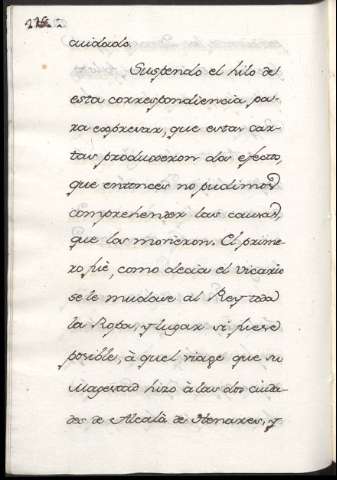 cuidado.
Suspendo el hilo de
esta correspondiencia pa-
ra expresar, que estas car-
tas produxeron dos efectos,
que entonces no pudimos
comprehender las causas
que los movieron. El prime-
ro fuè, como decia el vicario
se le mudase al Rey toda
la Ropa, y lugar si fuese
posible, à quel viage que su
Magestad hizo à las dos ciuda-
des de Alcalà de Henares, y